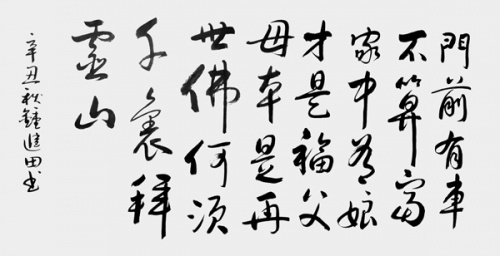 門前有車
不算富
家中有娘
才是福父
母本是再
世佛何須
千裏拜
靈山
辛丑秋鐘進田书